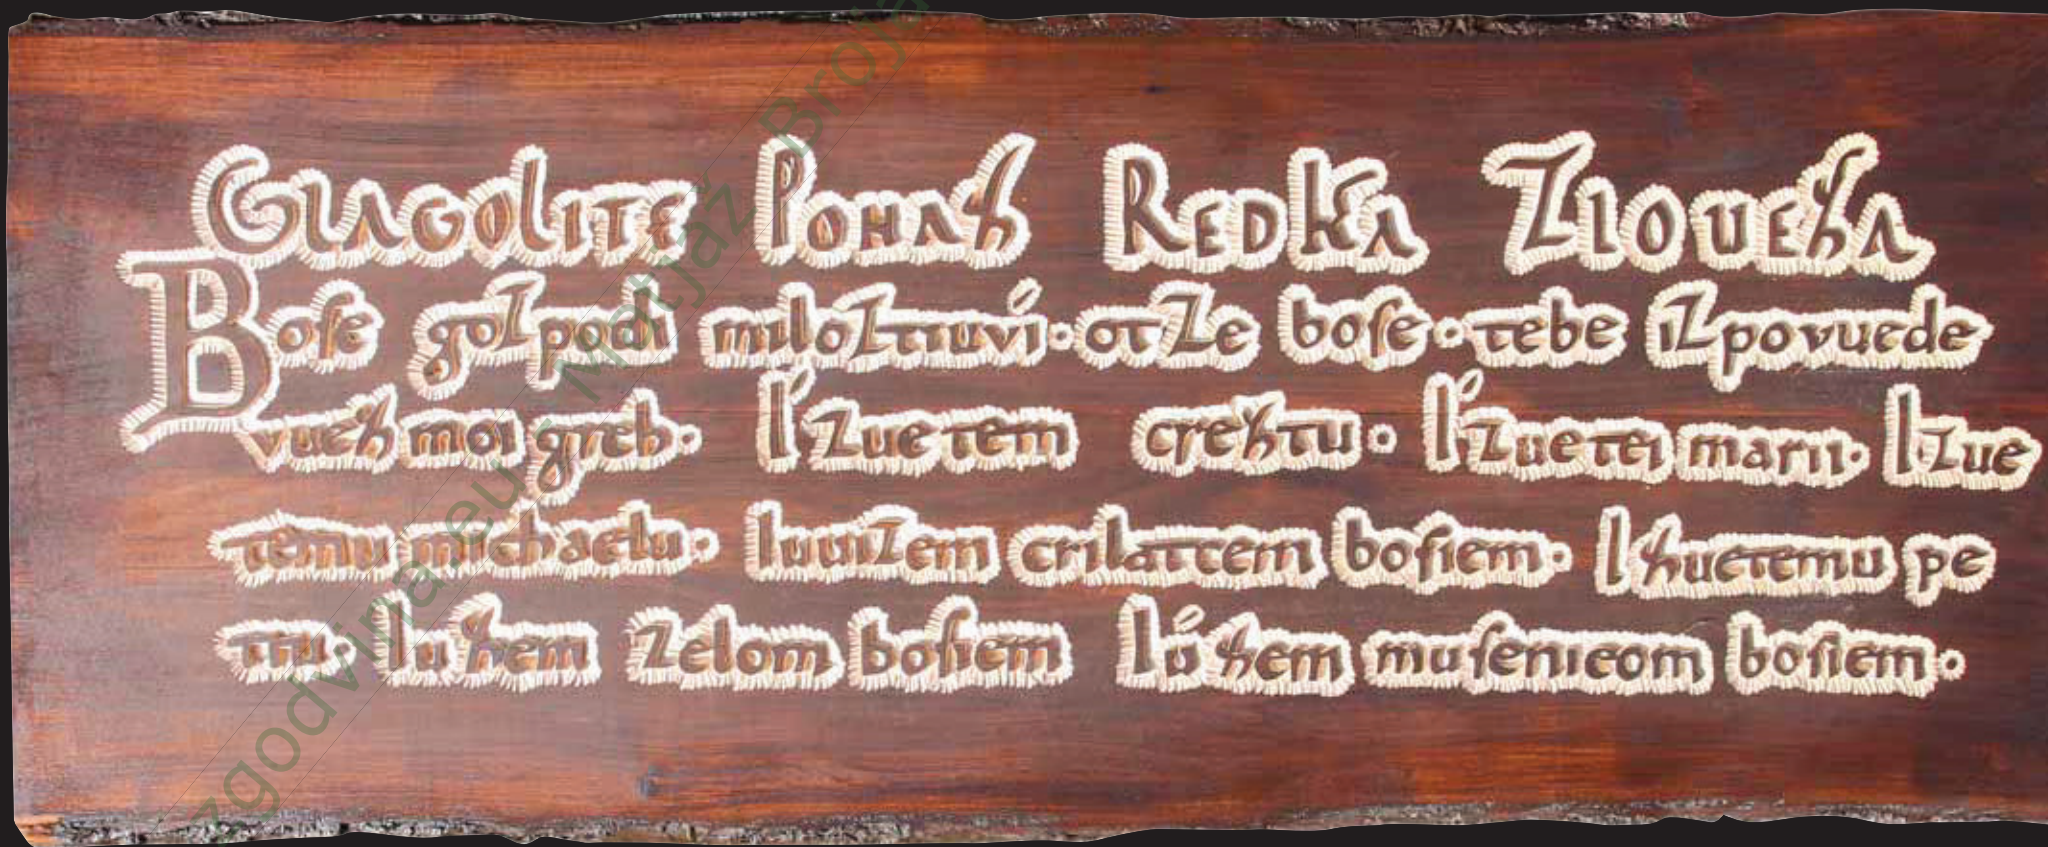 GLAGOLITE PONAZ REDKA ZLOUEZA
Bose gozpodi miloztiuvi· otze bose· tebe izpovuede
vuez moi greh· I zuetem creztu· I zuetei marii· I zue
temu michaelu· Iuuizem crilatcem bosiem· I zuetemu pe
tru· Iu zem zelom bosiem Iú zem musenicom bosiem·
zgodvina.eu - Matjaž Broja